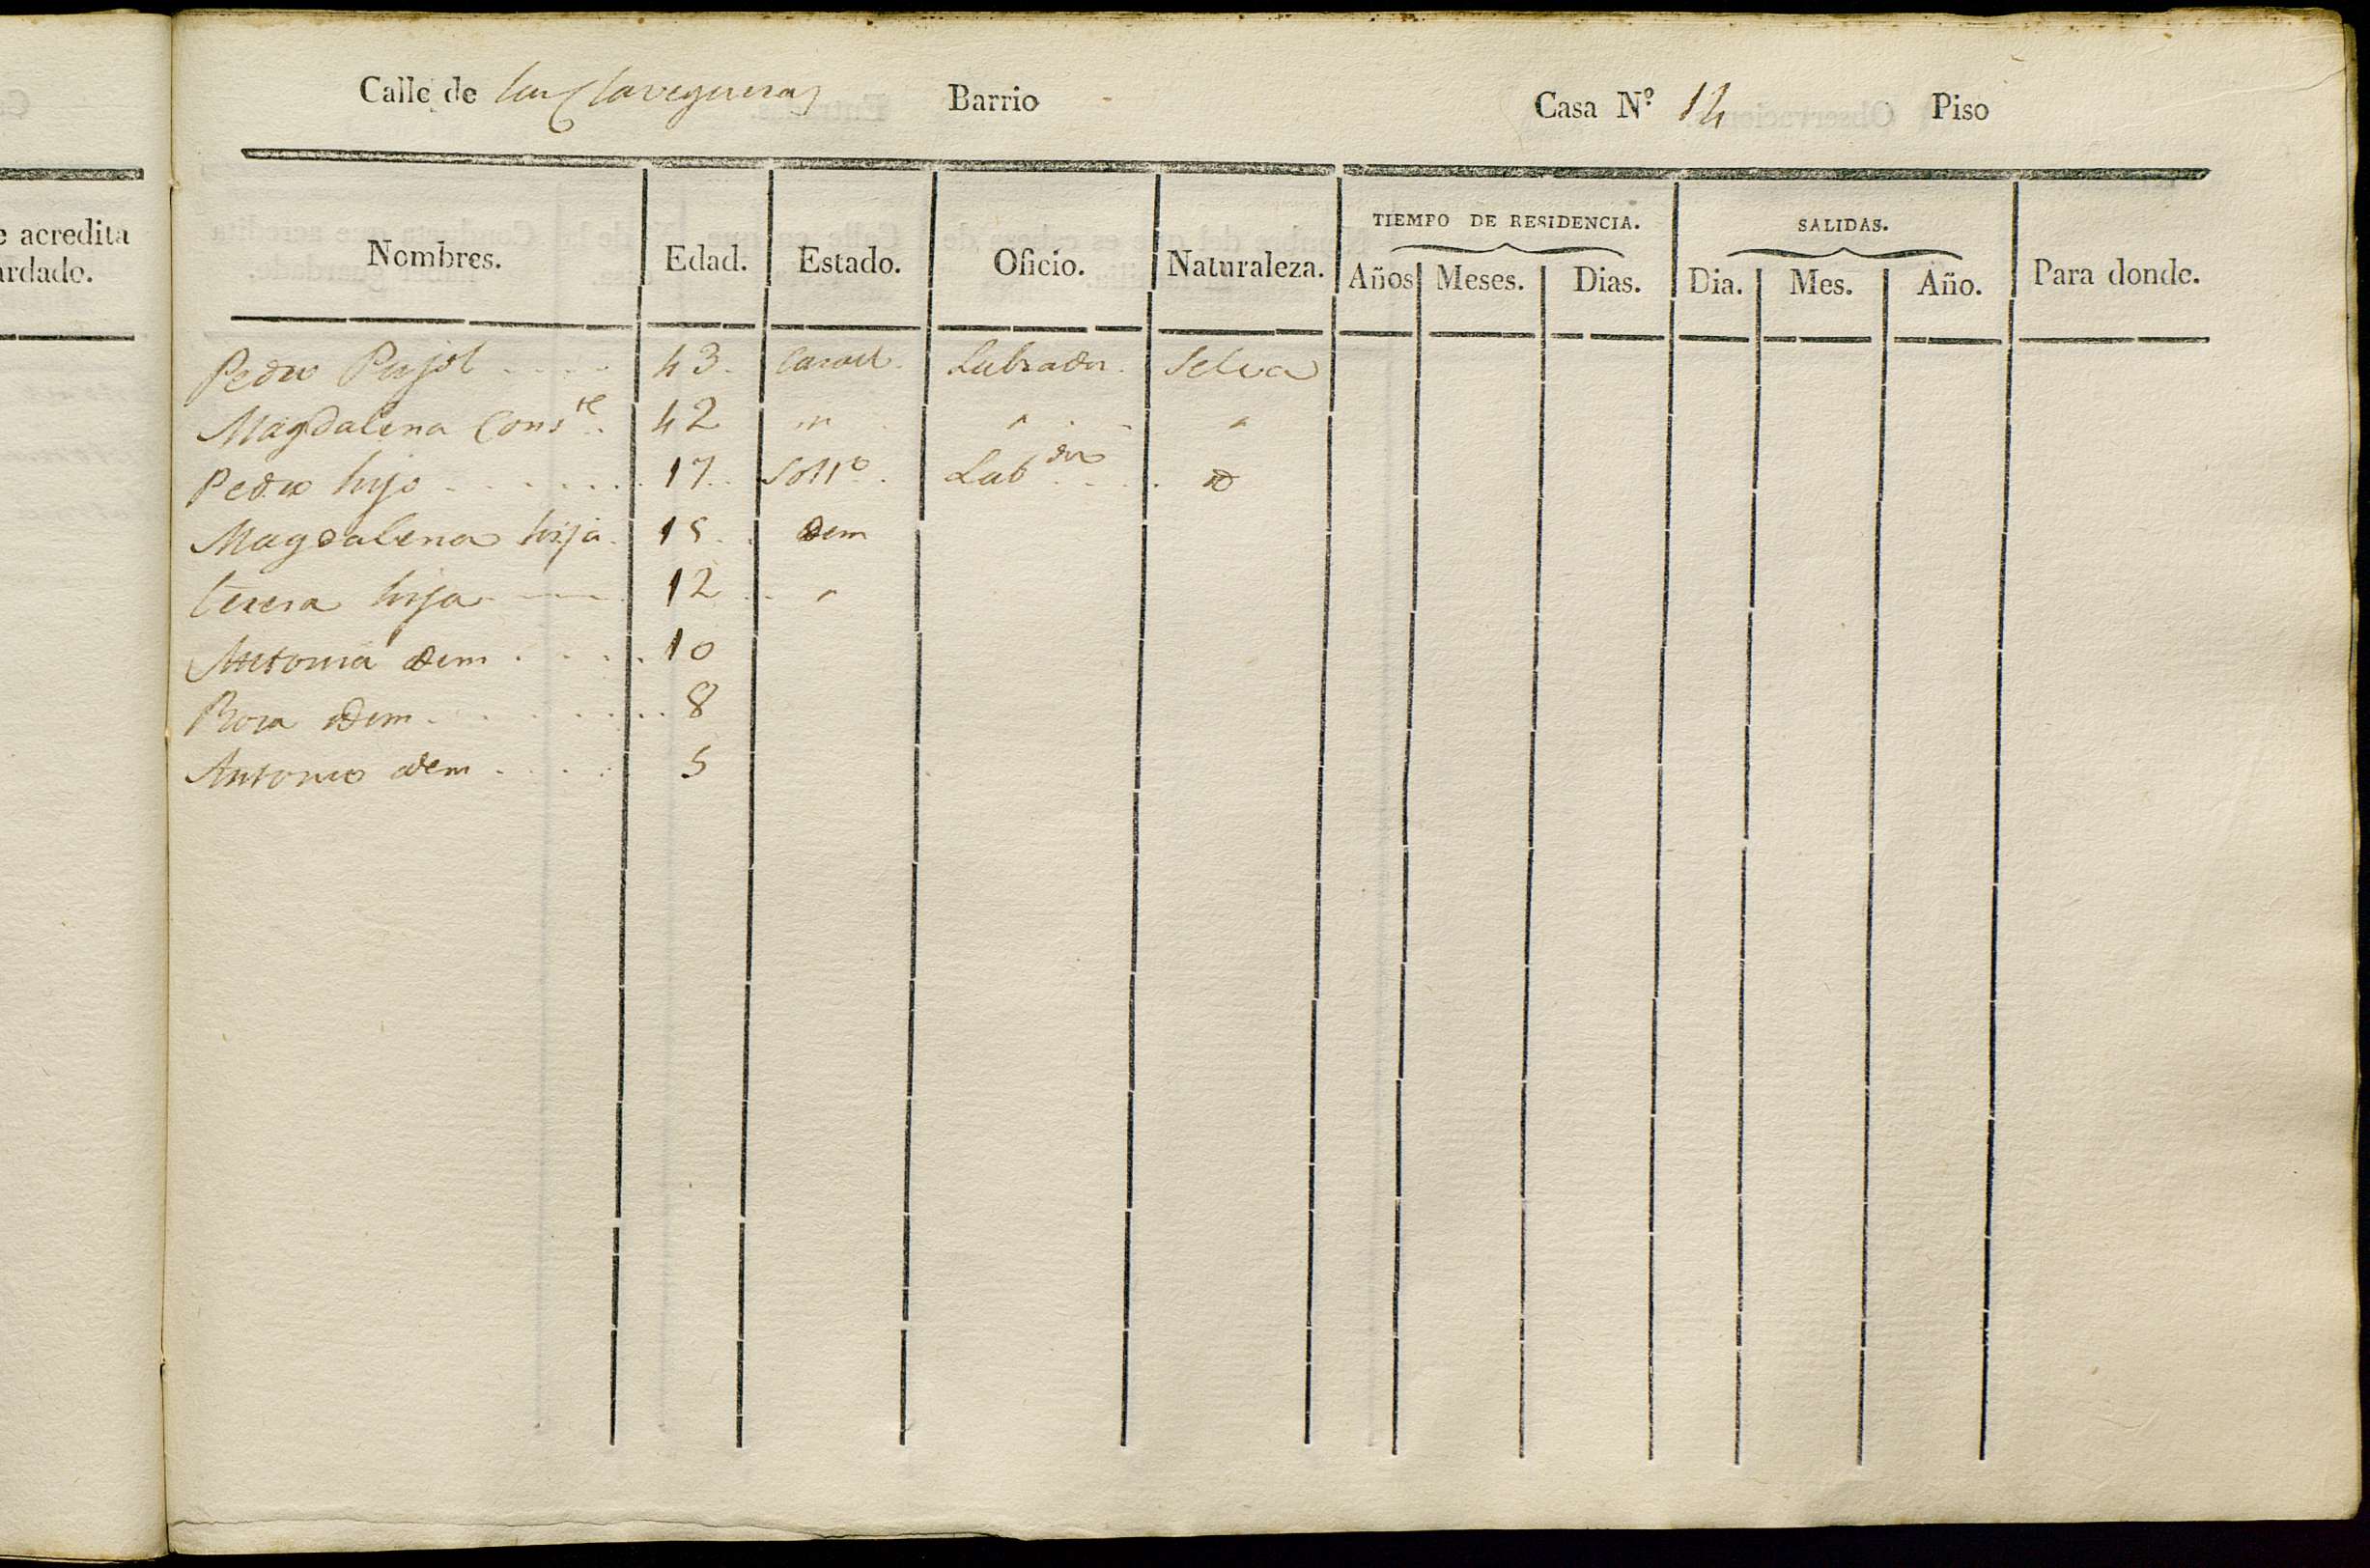 e acredita
ardado.
Calle de las Clavegueras Barrio Casa Nº 14 Piso
TIEMPO DE RESIDENCIA. SALIDAS.
Nombres. Edad. Estado. Oficio. Naturaleza. Años Meses. Dias. Dia. Mes. Año. Para donde.
Pedro Pujol . . . . 43. Casado. Labrador. Selva
Magdalena Conste. 42 " " "
Pedro hijo . . . . . . 17. Solto. Labdor . . . ID
Magdalena hija. 15. Idem
Teresa hija 12 "
Antonia idem . . . . 10
Rosa idem . . . . . . 8
Antonio idem . . . . 5